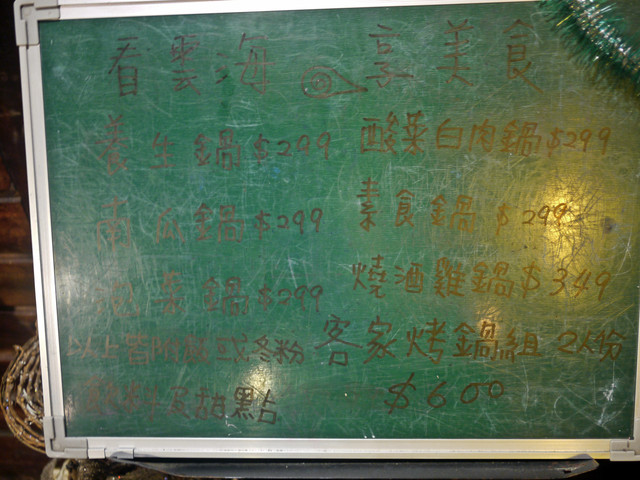 看雲海 享美食
養生鍋$299 酸菜白肉鍋$299
南瓜鍋$299 素食鍋$299
泡菜鍋$299 燒酒雞鍋$349
以上皆附飯或冬粉 客家烤鍋組 2人份
飲料及甜點 $600